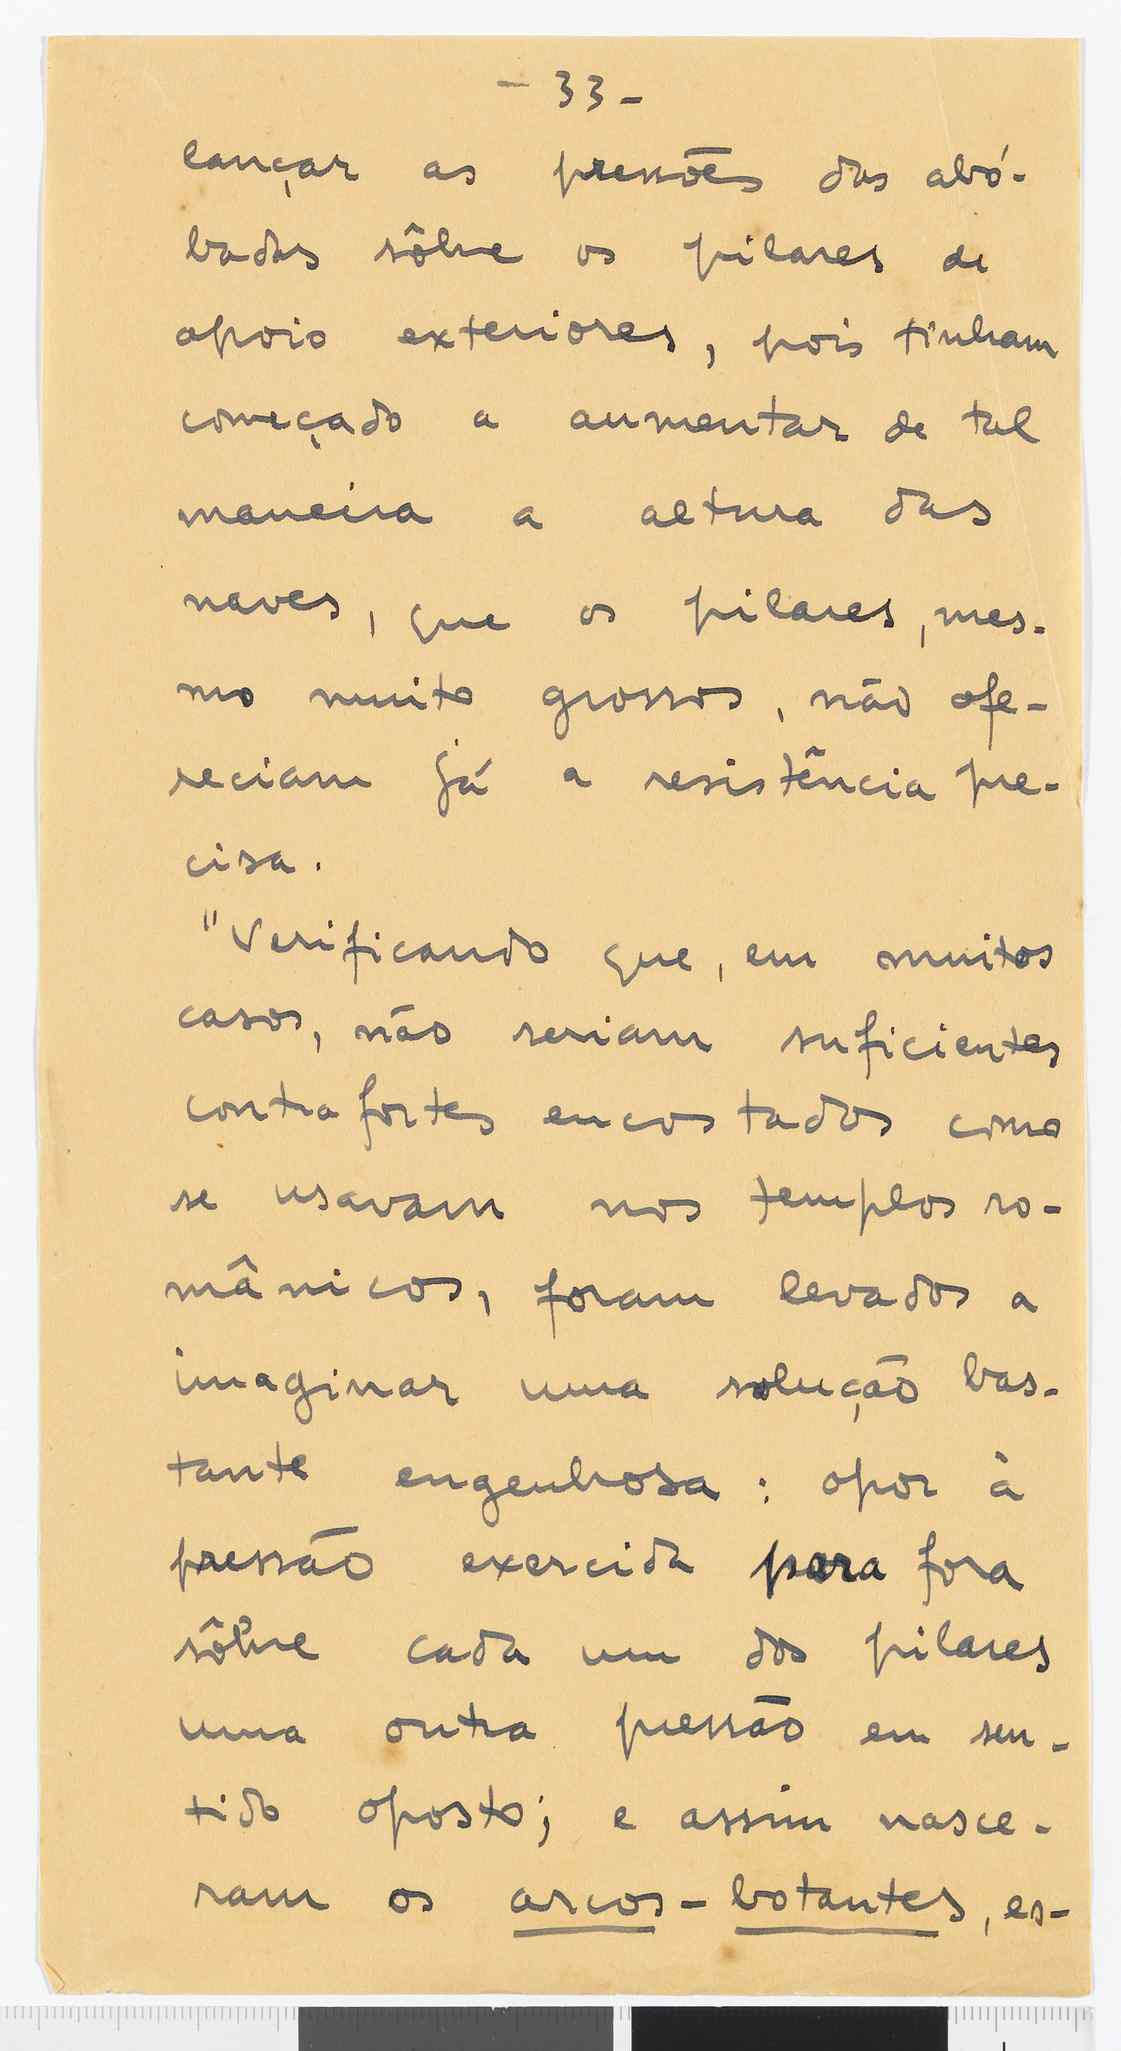 - 33 -
lançar as pressões das abó-
badas sôbre os pilares de
apoio exteriores, pois tinham
começado a aumentar de tal
maneira a altura das
naves, que os pilares, mes-
mo muito grossos, não ofe-
reciam já a resistência pre-
cisa.
"Verificando que, em muitos
casos, não seriam suficientes
contrafortes encostados como
se usavam nos templos ro-
mânicos, foram levados a
imaginar uma solução bas-
tante engenhosa: opor à
pressão exercida para fora
sôbre cada um dos pilares
uma outra pressão em sen-
tido oposto; e assim nasce-
ram os arcos-botantes, es-